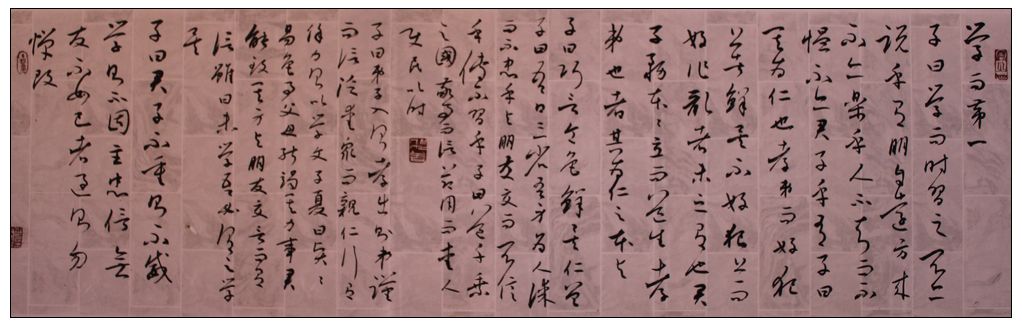 学而第一
子曰学而时习之不亦
说乎有朋自远方来
不亦乐乎人不知而不
愠不亦君子乎有子曰
其为仁也孝弟而好犯
上者鲜矣不好犯上而
好作乱者未之有也君
子务本本立而道生孝
弟也者其为仁之本与
子曰巧言令色鲜矣仁曾
子曰吾日三省吾身为人谋
而不忠乎与朋友交而不信
乎传不习乎子曰道千乘
之国敬事而信节用而爱人
使民以时
子曰弟子入则孝出则弟谨
而信泛爱众而亲仁行有
余力则以学文子夏曰贤贤
易色事父母能竭其力事君
能致其身与朋友交言而有
信虽曰未学吾必谓之学
矣
子曰君子不重则不威
学则不固主忠信无
友不如己者过则勿
惮改